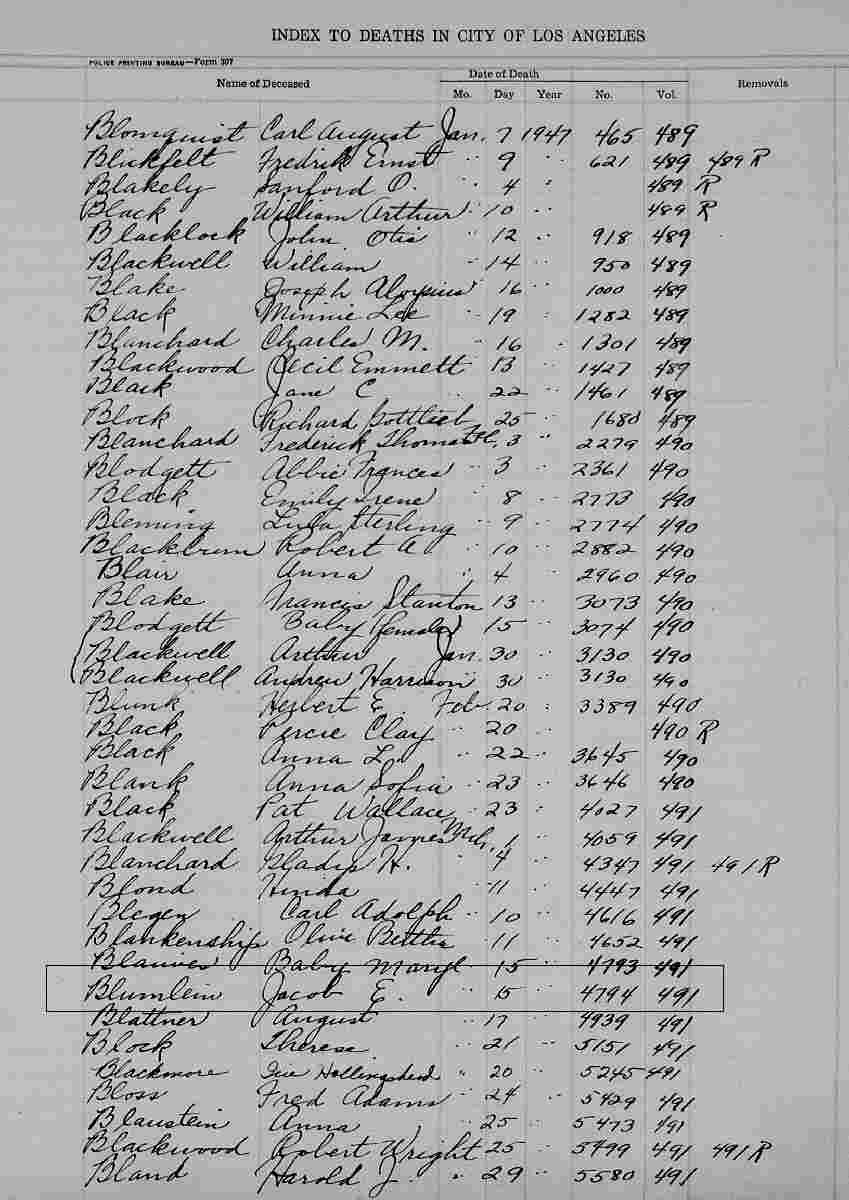 INDEX TO DEATHS IN CITY OF LOS ANGELES
POLICE PRINTING BUREAU—Form 307
Name of Deceased Date of Death Removals
Mo. Day Year No. Vol.
Blomquist Carl August Jan. 7 1947 465 489
Blickfelt Fredrick Ernst " 9 " 621 489 489 R
Blakely Sanford O. " 4 " 489 R
Black William Arthur " 10 " 489 R
Blacklock John Otis " 12 " 918 489
Blackwell William " 14 " 950 489
Blake Joseph Aloysius " 16 " 1000 489
Black Minnie Lee " 19 " 1282 489
Blanchard Charles M. " 16 " 1301 489
Blackwood Cecil Emmett " 13 " 1427 489
Black Jane C " 22 " 1461 489
Block Richard Gottlieb " 25 " 1680 489
Blanchard Frederick Thomas Feb. 3 " 2279 490
Blodgett Abbie Frances " 3 " 2361 490
Black Emily Irene " 8 " 2773 490
Bleming Lula Sterling " 9 " 2774 490
Blackburn Robert A " 10 " 2882 490
Blair Anna " 4 " 2960 490
Blake Francis Stanton 13 " 3073 490
Blodgett Baby (female) 15 " 3074 490
Blackwell Arthur Jan. 30 " 3130 490
Blackwell Andrew Harrison " 30 " 3130 490
Blunk Herbert E. Feb. 20 " 3389 490
Black Percie Clay " 20 " 490 R
Black Anna L. " 22 " 3645 490
Blank Anna Sofia " 23 " 3646 490
Black Pat Wallace " 23 " 4027 491
Blackwell Arthur James Mch. 1 " 4059 491
Blanchard Gladys H. " 4 " 4347 491 491 R
Blond Hinda " 11 " 4447 491
Blegen Carl Adolph " 10 " 4616 491
Blankenship Olive Bertha " 11 " 4652 491
Baby " 15 " 4793 491
Blumlein Jacob E. " 15 " 4794 491
Blattner August " 17 " 4939 491
Block Therese " 21 " 5151 491
Blackmore Hollingshead " 20 " 5245 491
Bloss Fred Adams " 24 " 5429 491
Blaustein Anna " 25 " 5473 491
Blackwood Robert Wright 25 " 5499 491 491 R
Bland Harold J. " 29 " 5580 491